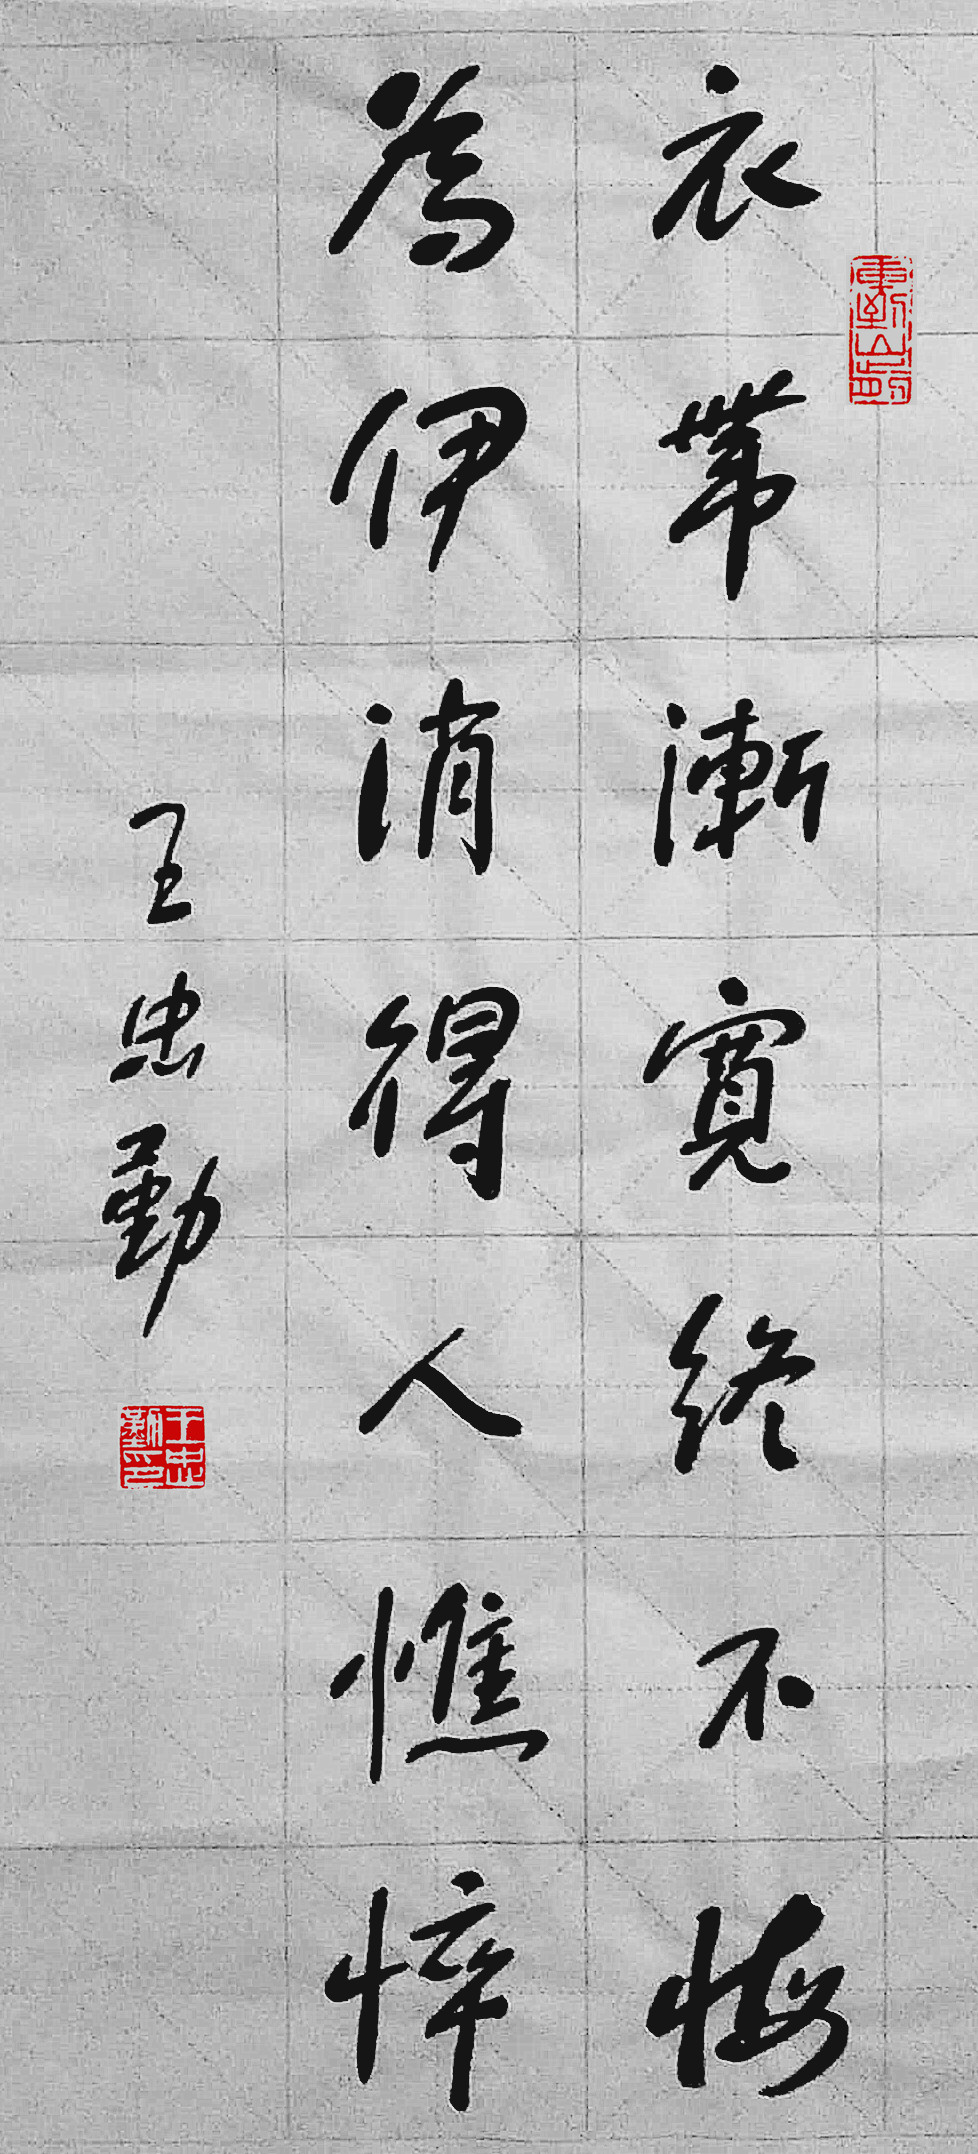 衣帶漸寬終不悔
為伊消得人憔悴
王忠勤
王忠勤印